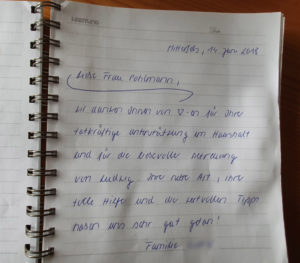 Mitterfels, 14. Juni 2018
Liebe Frau Pohlmann,
wir danken Ihnen von ♡-en für Ihre
tatkräftige Unterstützung im Haushalt
und für die liebevolle Betreuung
von Ludwig. Ihre nette Art, ihre
tolle Hilfe und die wertvollen Tipps
haben uns sehr gut getan!
Familie